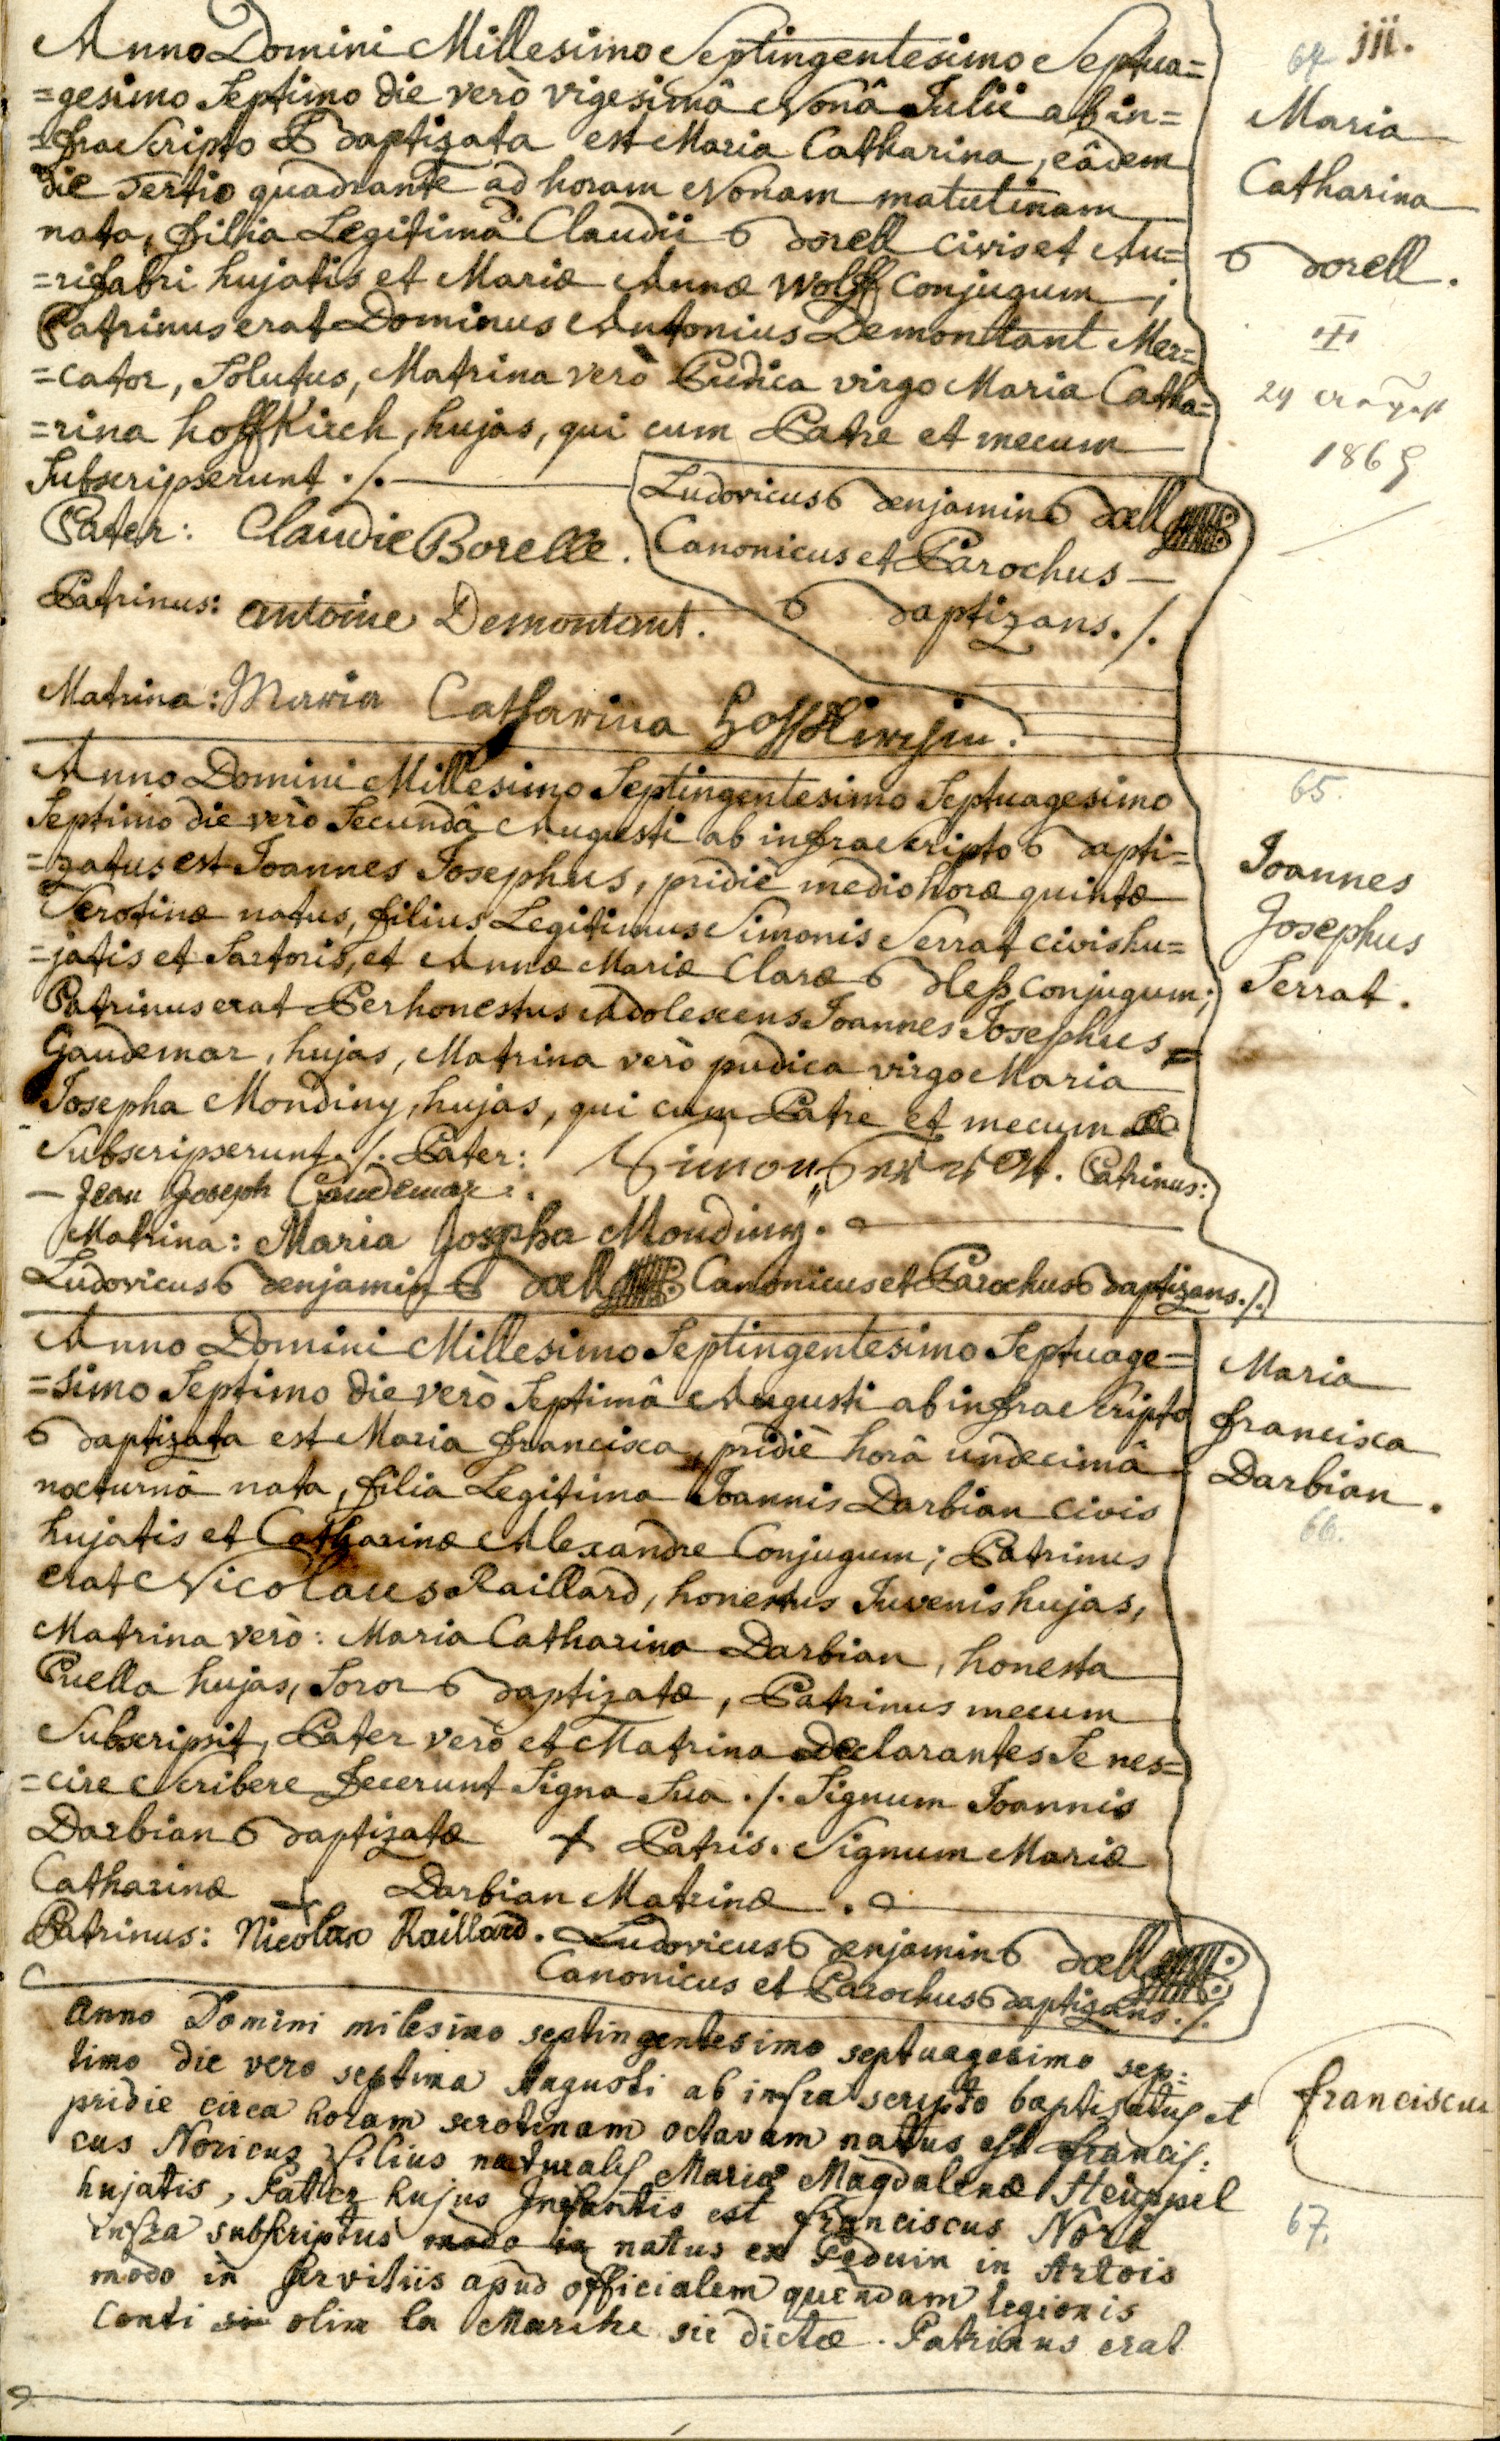 iii.
64
Anno Domini Millesimo Septingentesimo Septua=
=gesimo Septimo die verò vigesimâ Nonâ Julii ab in=
=frascripto Baptizata est Maria Catharina, eâdem
die tertio quadrante ad horam Nonam matutinam
nata, filia Legitima Claudii Borell civis et Au=
=rifabri hujatis et Mariæ Annæ Wolff Conjugum;
Patrinus erat Dominus Antonius Demontant Mer=
=cator, Solutus, Matrina verò Pudica virgo Maria Catha=
=rina hoffKirch, hujas, qui cum Patre et mecum
Subscripserunt ./.
Maria
Catharina
Borell.
29
1869
Ludovicus Benjamin Bœll
Canonicus et Parochus
Baptizans ./.
Pater: Claudie Borelle.
Patrinus: antoine Demontant.
Matrina: Maria Catharina Hoffkirchin.
Anno Domini Millesimo Septingentesimo Septuagesimo
Septimo die verò Secundâ Augusti ab infrascripto Bapti=
=zatus est Joannes Josephus, pridiè medio horæ quintæ
Serotinæ natus, filius Legitimus Simonis Serrat civis hu=
=jatis et Sartoris, et Annæ Mariæ Claræ Bleß conjugum;
Patrinus erat Perhonestus Adolescens Joannes Josephus
Gaudemar, hujas, Matrina verò pudica virgo Maria
Josepha Mondiny, hujas, qui cum Patre et mecum
Subscripserunt ./. Pater: Simon Patrinus:
Jean Joseph Gaudemar.
Matrina: Maria Jospha Mondiny.
Ludovicus Benjamin Bœll Canonicus et Parochus Baptizans ./.
65.
Joannes
Josephus
Serrat.
Anno Domini Millesimo Septingentesimo Septuage=
=simo Septimo die verò Septimâ Augusti ab infrascripto
Baptizata est Maria francisca, pridiè horâ undecimâ
nocturnâ nata, filia Legitima Joannis Darbian civis
hujatis et Catharinæ Alexandre Conjugum; Patrinus
erat Nicolaus Raillard, honestus Juvenis hujas,
Matrina verò: Maria Catharina Darbian, honesta
Puella hujas, Soror Baptizatæ, Patrinus mecum
Subscripsit, Pater verò et Matrina Declarantes Se nes=
=cire Scribere fecerunt Signa Sua ./. Signum Joannis
Darbian Baptizatæ + Patris. Signum Mariæ
Catharinæ + Darbian Matrinæ.
Patrinus: Nicolas Raillard. Ludovicus Benjamin Bœll
Canonicus et Parochus Baptizans ./.
Maria
francisca
Darbian.
66.
anno Domini milesimo septingentesimo septuagesimo sep:
timo die vero septima Augusti ab infra scripto baptizatus et
pridie circa horam serotinam octavam natus est francis:
cus Noricus filius naturalis Mariæ Magdalenæ Heüppel
hujatis, Pater hujus Infantis est franciscus Nori
infra subscriptus modo in natus ex Peduin in Artois
modo in servitiis apud officialem quendam legionis
Conti olim la Marche sic dictæ. Patrinus erat
franciscus
67.